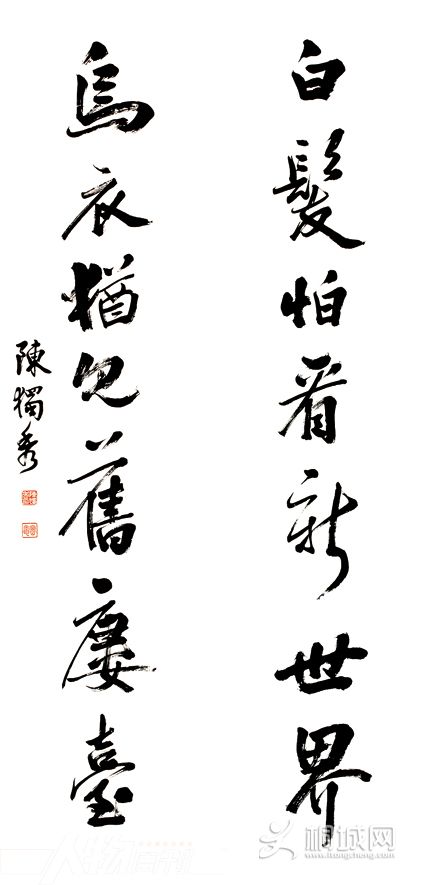 白髮怕看新世界
烏衣猶見舊廔臺
陳獨秀
桐城网
www.itongcheng.com